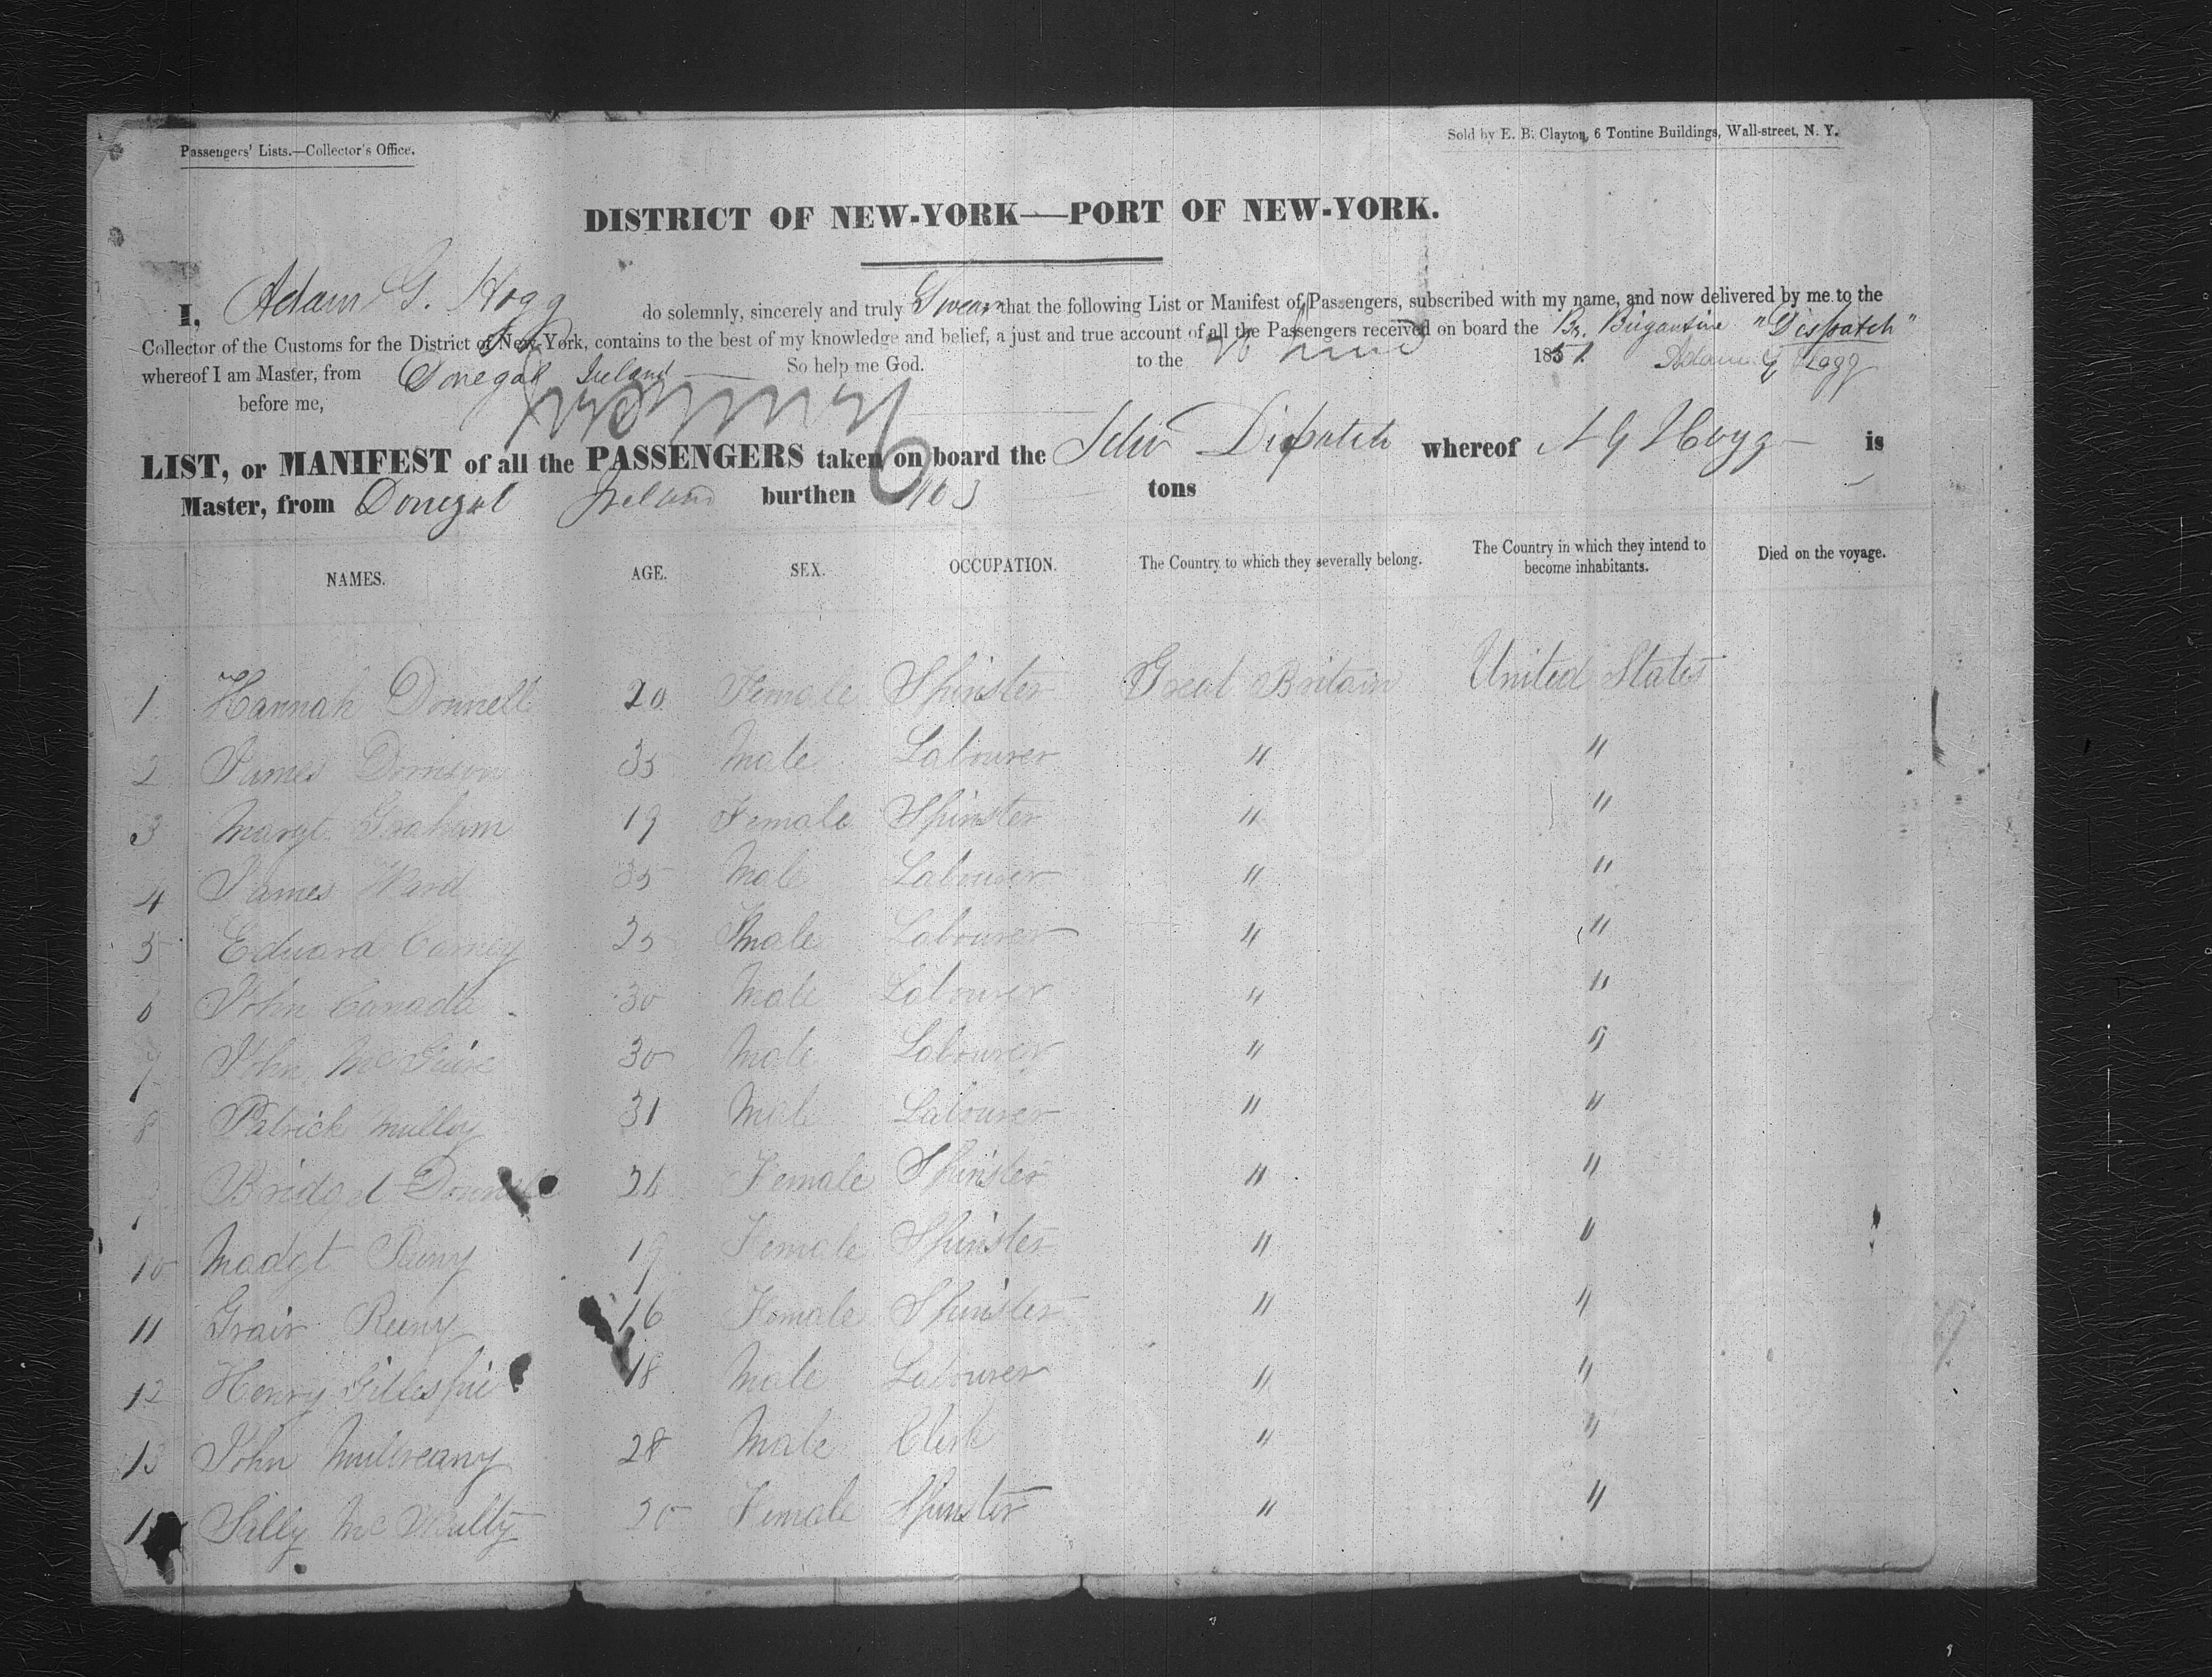 Passengers' Lists.—Collector's Office.
Sold by E. B. Clayton, 6 Tontine Buildings, Wall-street, N. Y.
DISTRICT OF NEW-YORK—PORT OF NEW-YORK.
I, Adam G. Hogg do solemnly, sincerely and truly Swear that the following List or Manifest of Passengers, subscribed with my name, and now delivered by me to the
Collector of the Customs for the District of New-York, contains to the best of my knowledge and belief, a just and true account of all the Passengers received on board the Br. Brigantine "Dispatch"
whereof I am Master, from Donegal Ireland So help me God. to the 1851 Adam G Hogg
before me,
LIST, or MANIFEST of all the PASSENGERS taken on board the Schr Dispatch whereof A G Hogg is
Master, from Donegal Ireland burthen 163 tons
NAMES. AGE. SEX. OCCUPATION. The Country to which they severally belong. The Country in which they intend to become inhabitants. Died on the voyage.
1 Hannah Donnell 20 Female Spinster Great Britain United States
2 James 35 Male Labourer " "
3 Margt Graham 19 Female Spinster " "
4 James Ward 35 Male Labourer " "
5 Edward Carney 25 Male Labourer " "
6 John Canada 30 Male Labourer " "
7 John McGuire 30 Male Labourer " "
8 Patrick Mulloy 31 Male Labourer " "
9 Bridget Donnell Female Spinster " "
10 Madgt 19 Female Spinster " "
11 Reeny 16 Female Spinster " "
12 Henry Gillespie 18 Male Labourer " "
13 John Mulreany 28 Male Clerk " "
Silly McNulty 20 Female Spinster " "